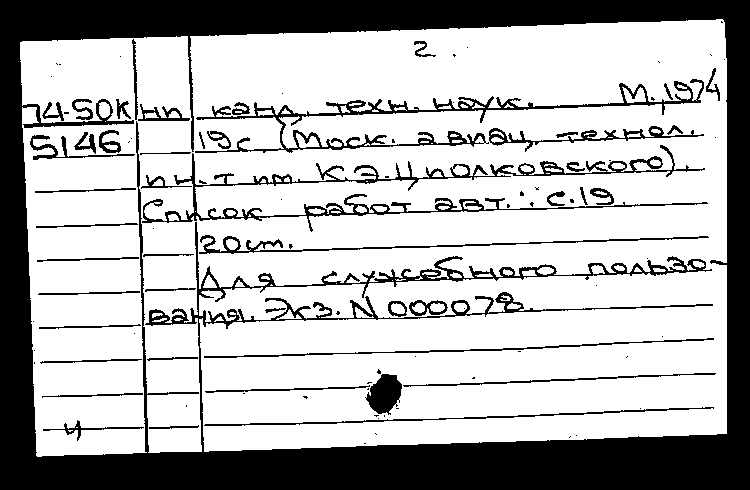 2.
74-50К нии канд. техн. наук. М., 1974
5146 19с. (Моск. авиац. технол.
ин-т им. К.Э.Циолковского).
Список работ авт.: с.19.
20см.
Для служебного пользо-
вания. Экз. N 000078.
и